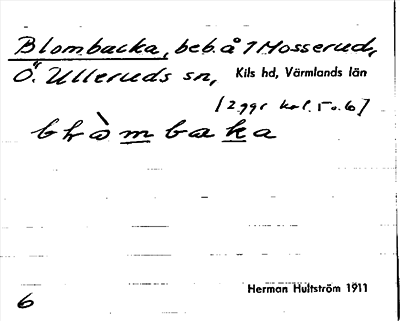 Blombacka, beb. å 7 Mosserud,
Ö. Ulleruds sn, Kils hd, Värmlands län
[2 ggr kol. 5 o. 6]
blòmbaka
6
Herman Hultström 1911